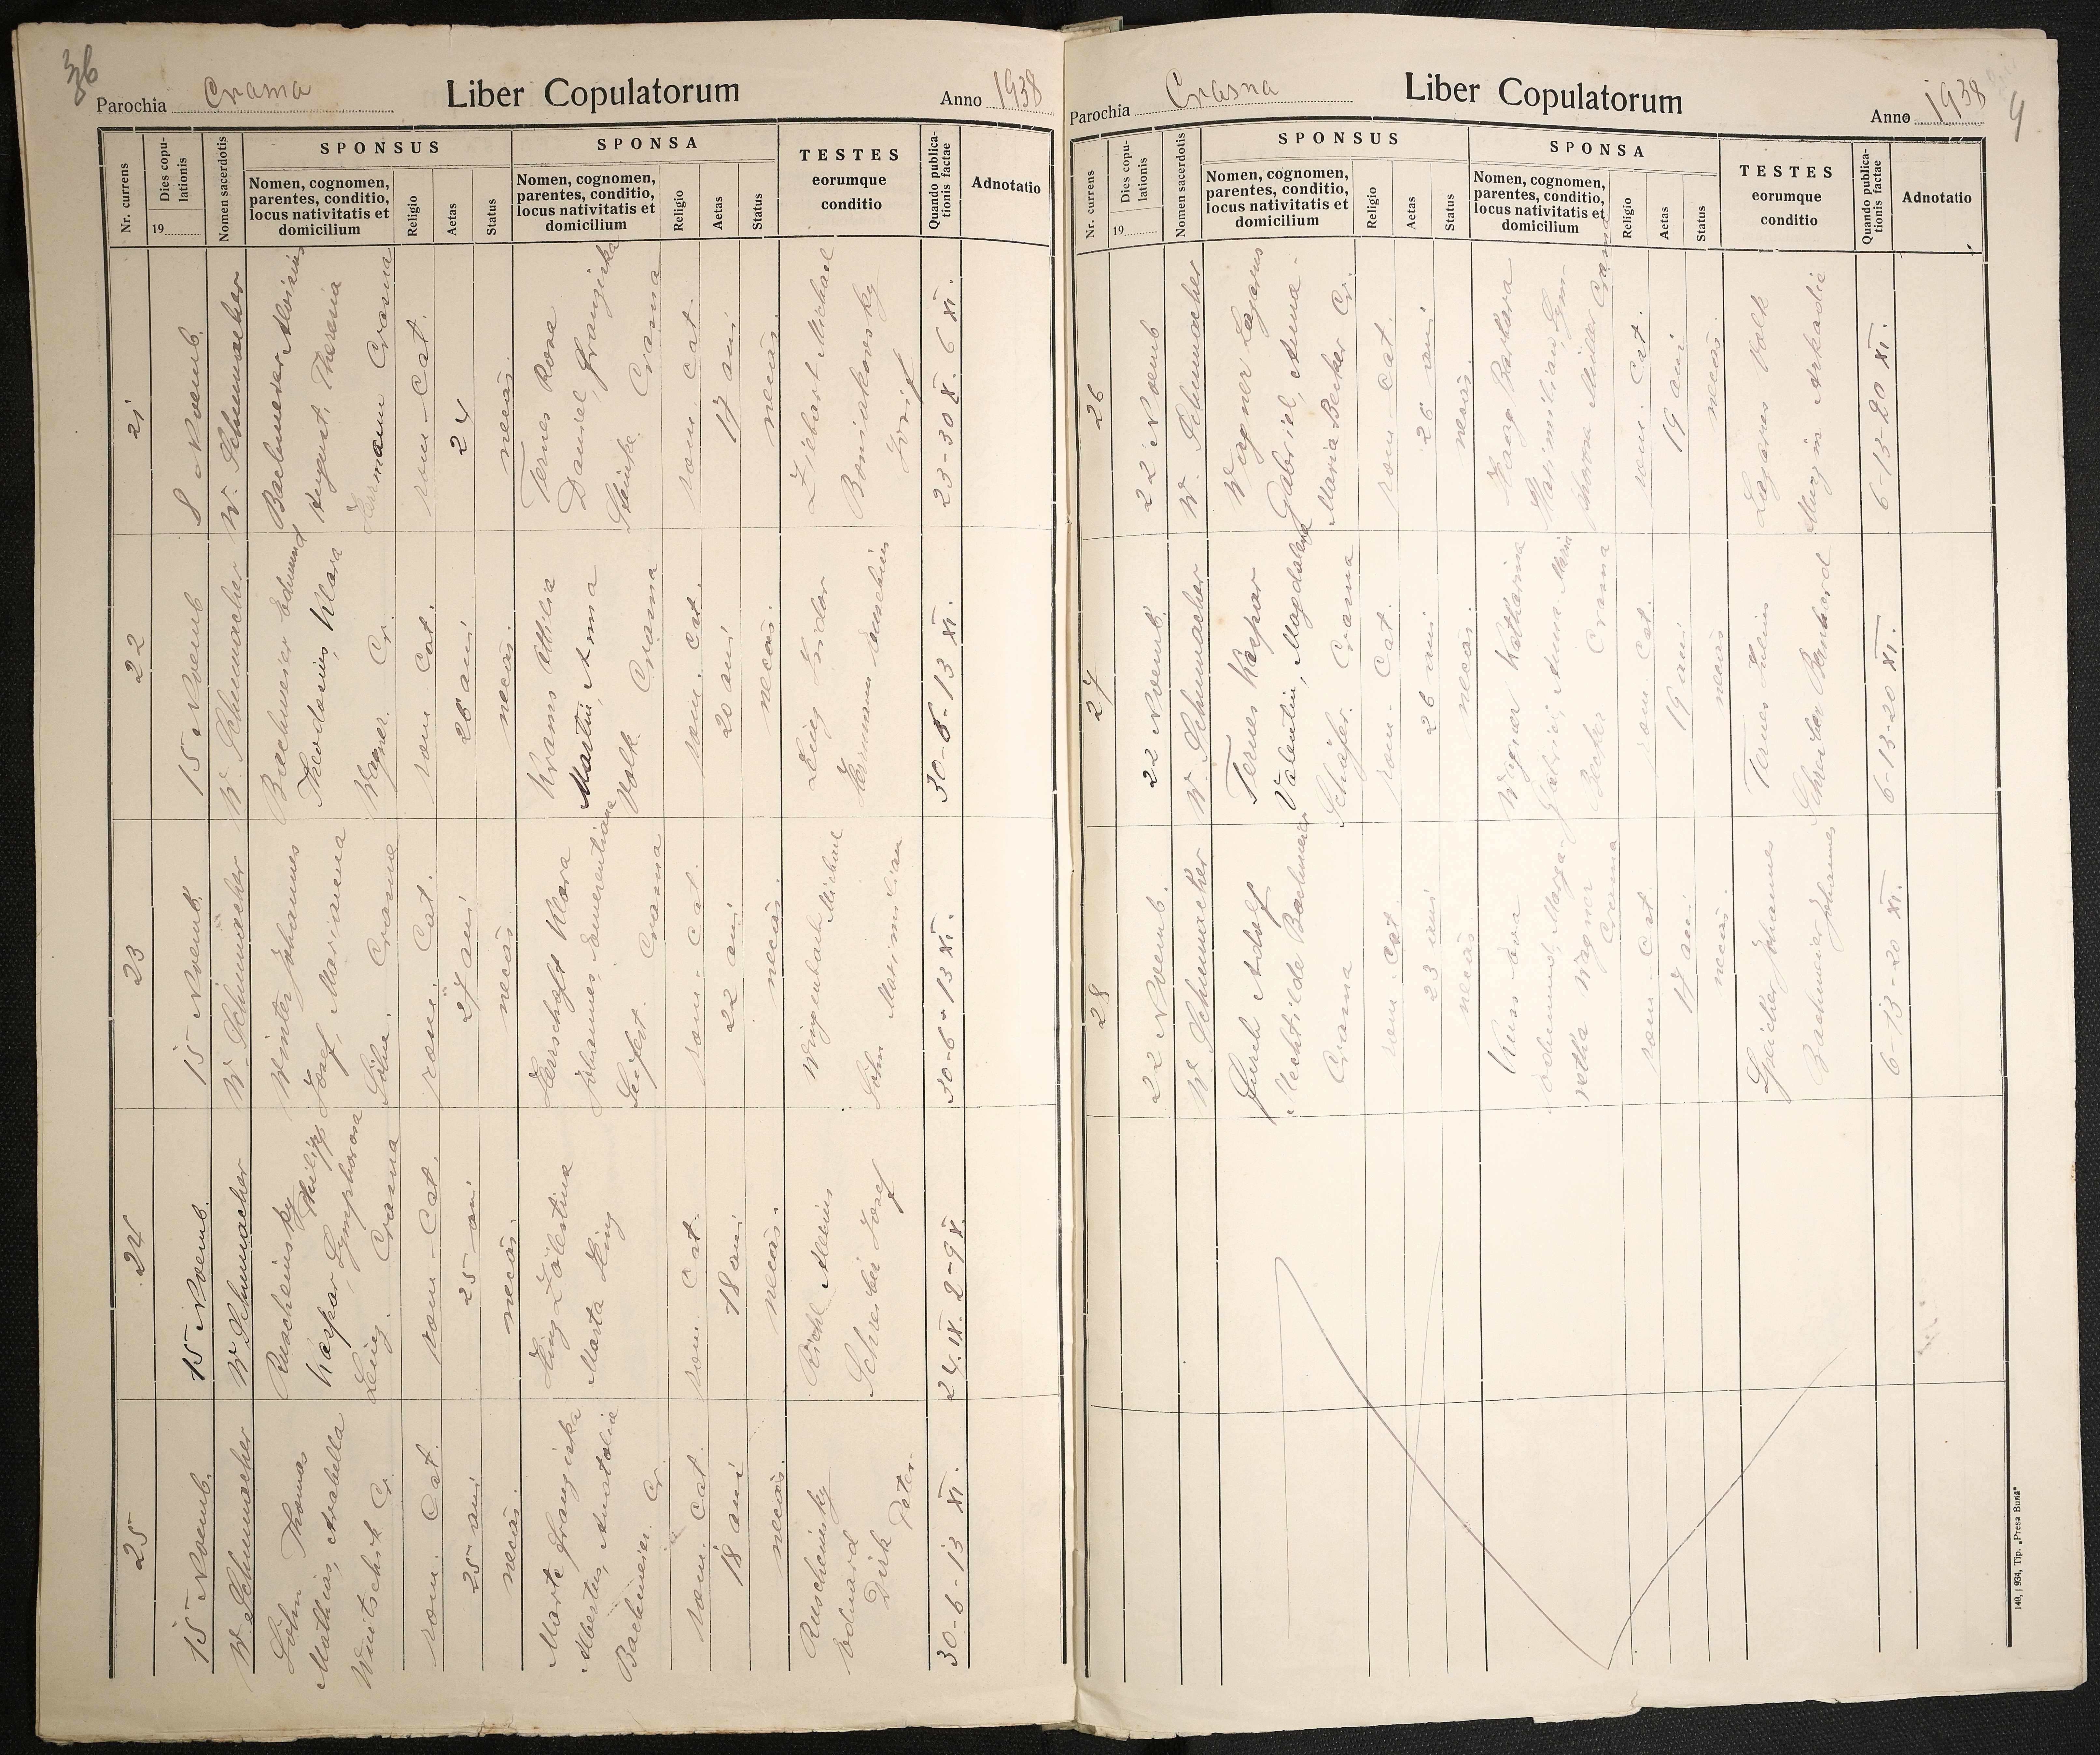 36
Parochia Crasna
Liber Copulatorum
Anno 1938
Nr. currens
Dies copu-
lationis
19
Nomen sacerdotis
SPONSUS
Nomen, cognomen,
parentes, conditio,
locus nativitatis et
domicilium
Religio
Aetas
Status
SPONSA
Nomen, cognomen,
parentes, conditio,
locus nativitatis et
domicilium
Religio
Aetas
Status
TESTES
eorumque
conditio
Quando publica-
tionis factae
Adnotatio
21
8 Noemb.
W. Schumacher
Bachmeier Aloisius
August, Theresia
Crasna
rom-Cat.
24
necăs.
Ternes Rosa
Daniel, Franziska
Crasna
rom. cat.
17 ani
necăs.
Michael
Boniakowsky
Josif
23-30 X. 6 XI.
22
15 Noemb
W. Schumacher
Bachmeier Edmund
Theodosius, Klara
Wagner. Cr.
rom Cat.
26 ani
necăs.
Krams Ottilia
Martin, Anna
Volk Crasna
rom. Cat.
20 ani
necăs.
Leieg Isidor
Herrmann
30-6-13 XI.
23
15 Noemb.
W. Schumacher
Winter Johannes
Josef, Marianna
Söhn. Crasna
rom. Cat.
27 ani
necăs
Herrschaft Klara
Johannes, Emerentiana
Seifert. Crasna
rom. Cat.
22 ani
necăs.
Wingenbach Michael
Söhn Maximilian
30-6-13 XI.
24
15 Noemb.
W Schumacher
Ruscheinsky Philipp
Kaspar, Symphorosa
Leieg. Crasna
rom-Cat.
25 ani
necăs.
Hing Zölestina
Marta Hing
rom. Cat.
18 ani
necăs.
Riehl Alexius
Schreiber Josef
24.IX. 2-9 X.
25
15 Noemb.
W. Schumacher
Söhn Thomas
Mathias, Arabella
Winitschik Cr.
rom. Cat.
25 ani
necăs.
Marte Franziska
Albertus, Anatolia
Bachmeier. Cr.
rom. Cat.
18 ani
necăs.
Ruscheinsky
Eduard
Dirk Peter
30-6-13 XI.
Parochia Crasna
Liber Copulatorum
Anno 1938
Nr. currens
Dies copu-
lationis
19
Nomen sacerdotis
SPONSUS
Nomen, cognomen,
parentes, conditio,
locus nativitatis et
domicilium
Religio
Aetas
Status
SPONSA
Nomen, cognomen,
parentes, conditio,
locus nativitatis et
domicilium
Religio
Aetas
Status
TESTES
eorumque
conditio
Quando publica-
tionis factae
Adnotatio
26
22 Noemb
W. Schumacher
Wagner Lazarus
Gabriel, Anna-
Maria Becker Cr.
rom-Cat.
26 ani
necăs.
Haag Barbara
Maximilian,
Müller Crasna
rom. Cat.
19 ani
necăs.
Lazarus Volk
Arkadie
6-13-20 XI.
27
22 Noemb.
W. Schumacher
Ternes Kaspar
Valentin, Magdalena
Schäfer. Crasna
rom-Cat.
26 ani
necăs.
Wagner Katharina
Gabriel, Anna-Maria
Becker Crasna
rom. Cat.
19 ani
necăs
Ternes
Schreiber Bernhard
6-13-20 XI.
28
22 Noemb.
W. Schumacher
Adolf
Mechtilde Bachmeier
Crasna
rom-Cat.
23 ani
necăs
Kuss Eva
Edmund, Marga-
retha Wagner
Crasna
rom-Cat
17 ani
necăs.
Speicher Johannes
Bachmeier Johannes
6-13-20 XI.
149, 1934, Tip. „Presa Bună"